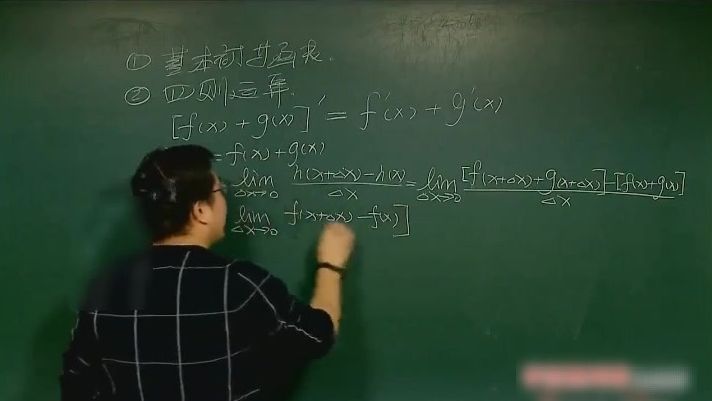 ① 基本初等函数.
② 四则运算.
[f(x)+g(x)]' = f'(x)+g'(x)
=f(x)+g(x)
lim Δx→0 h(x+Δx)-h(x) / Δx = lim Δx→0 [f(x+Δx)+g(x+Δx)]-[f(x)+g(x)] / Δx
lim Δx→0 f(x+Δx)-f(x)]